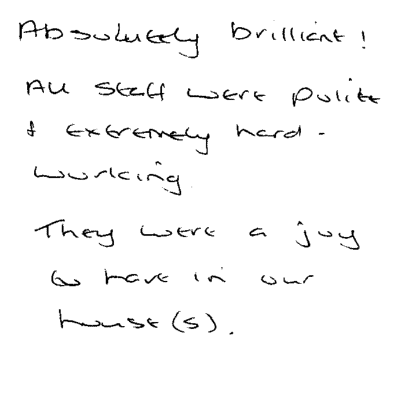 Absolutely brilliant!
All staff were polite
& extremely hard-
working
They were a joy
to have in our
house(s).